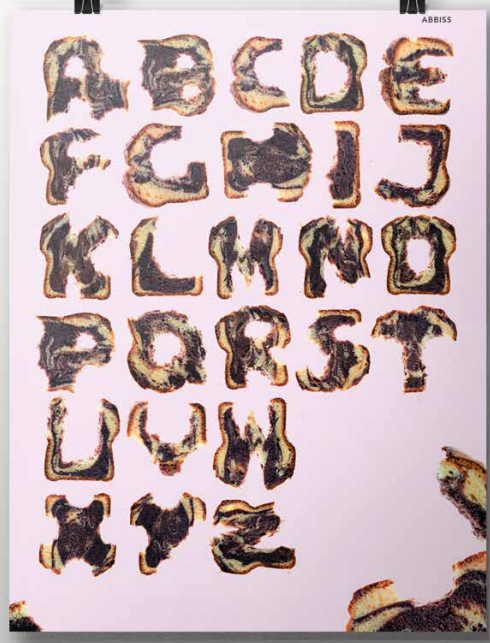 ABBISS
A B C D E
F G H I J
K L M N O
P Q R S T
U V W
X Y Z